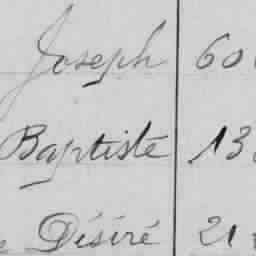 Joseph 60
Baptiste 13
Désiré 21